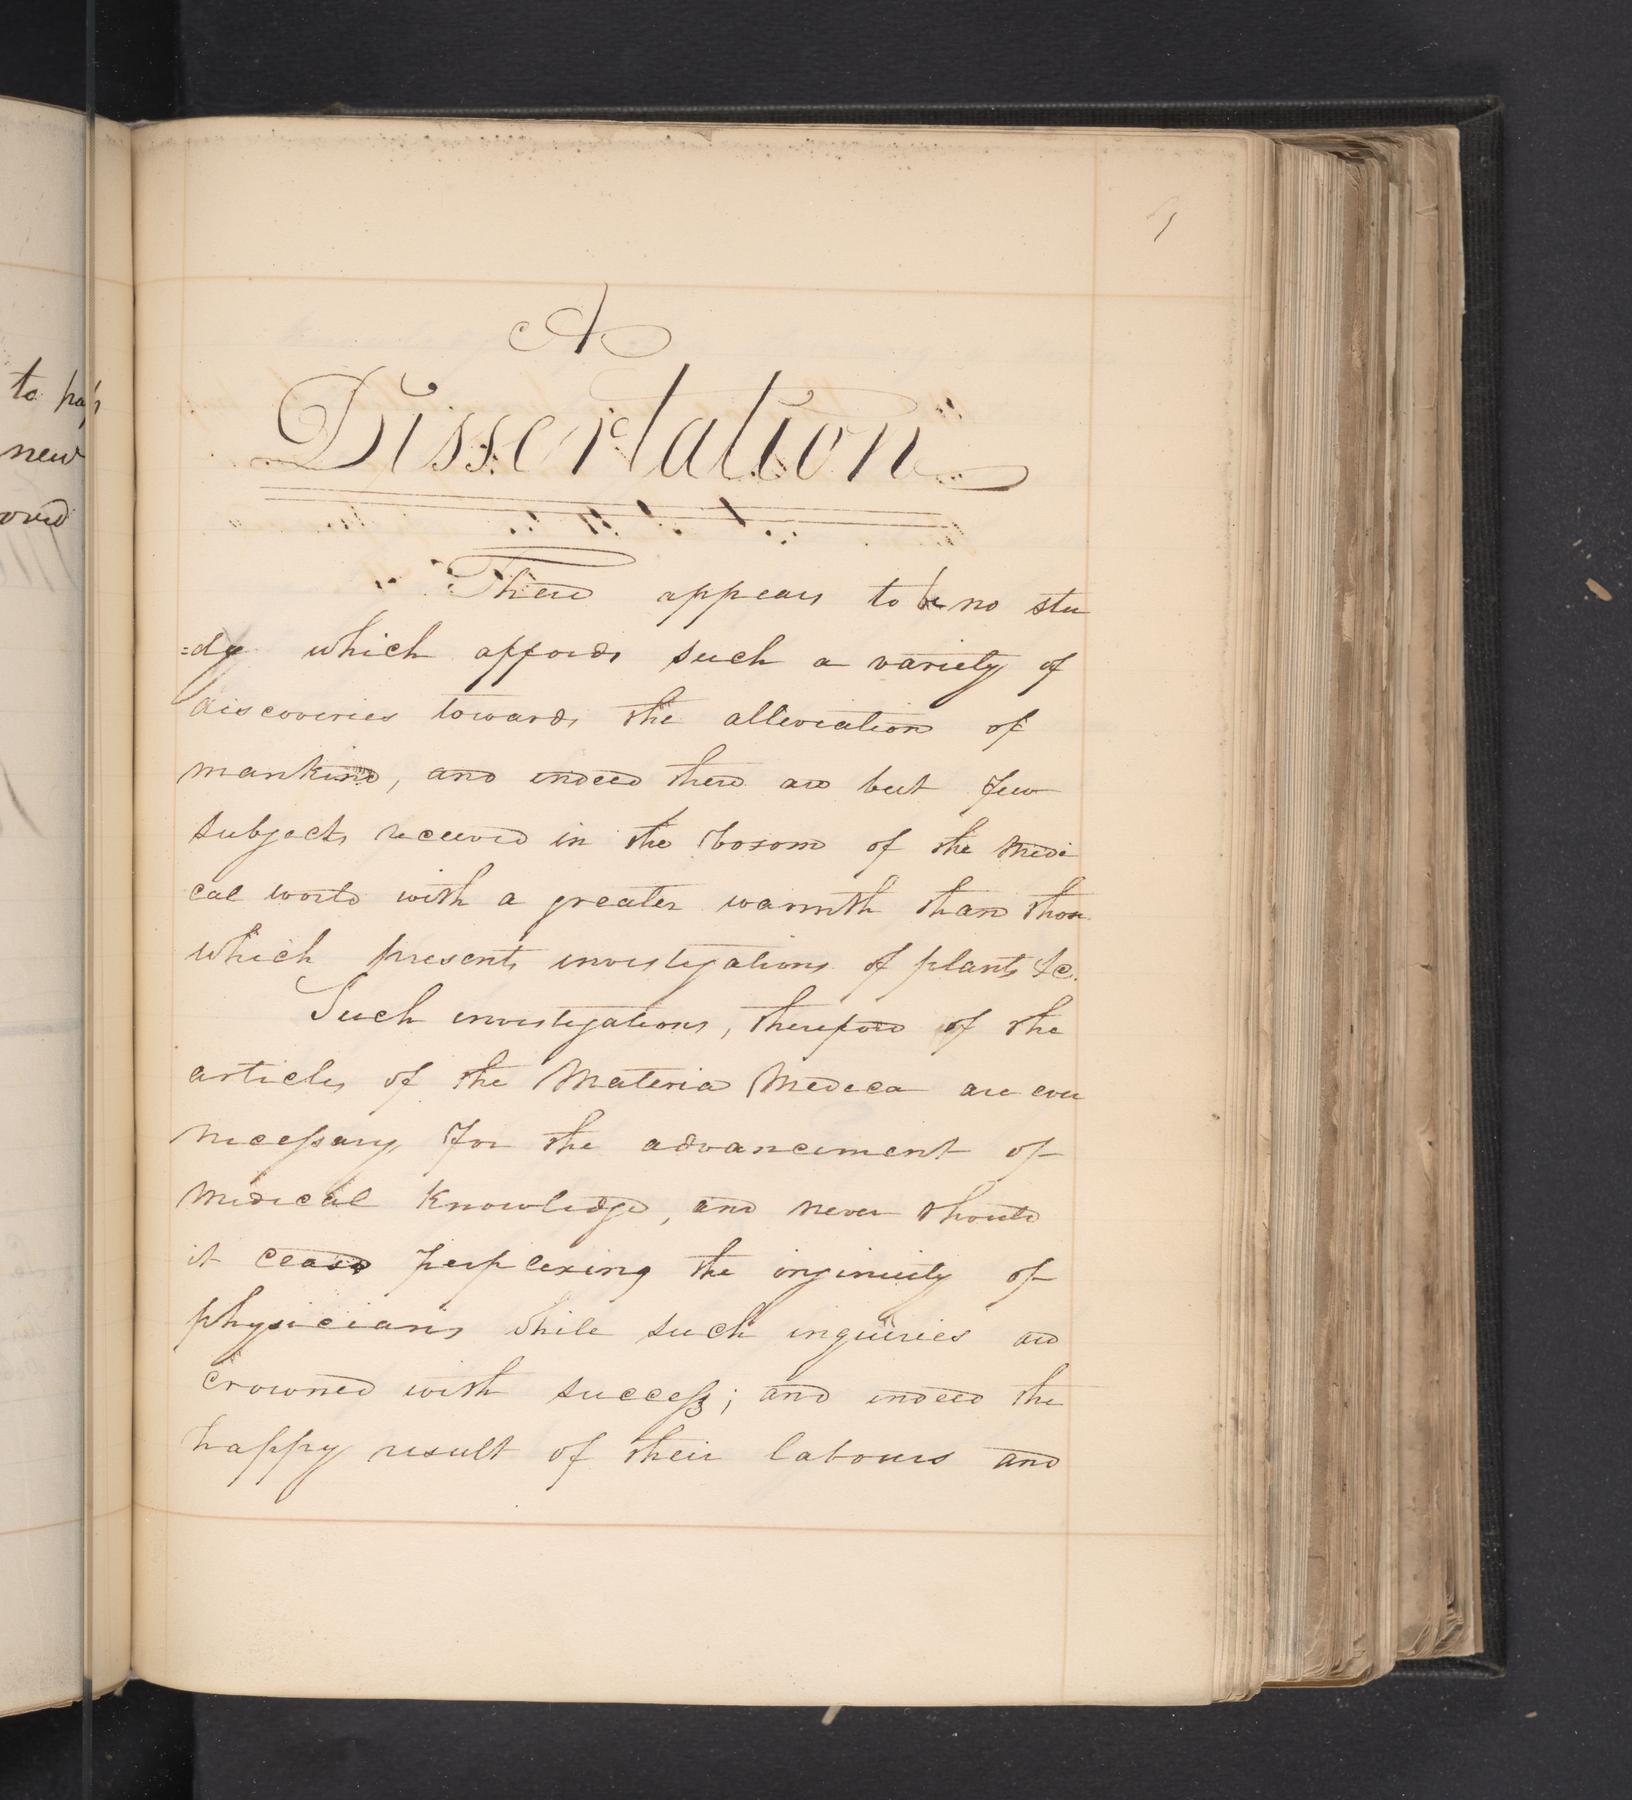 to pass
new
A
Dissertation
There appears to be no stu
=dy which affords such a variety of
discoveries towards the alleviation of
mankind, and indeed there are but few
subjects received in the bosom of the medi
cal world with a greater warmth than those
which presents investigations of plants &c.
Such investigations, therefore of the
articles of the Materia Medeca are ever
necessary for the advancement of
medical knowledge, and never should
it cease perplexing the inginuity of
physicians while such inquiries are
crowned with success; and indeed the
happy result of their labours and